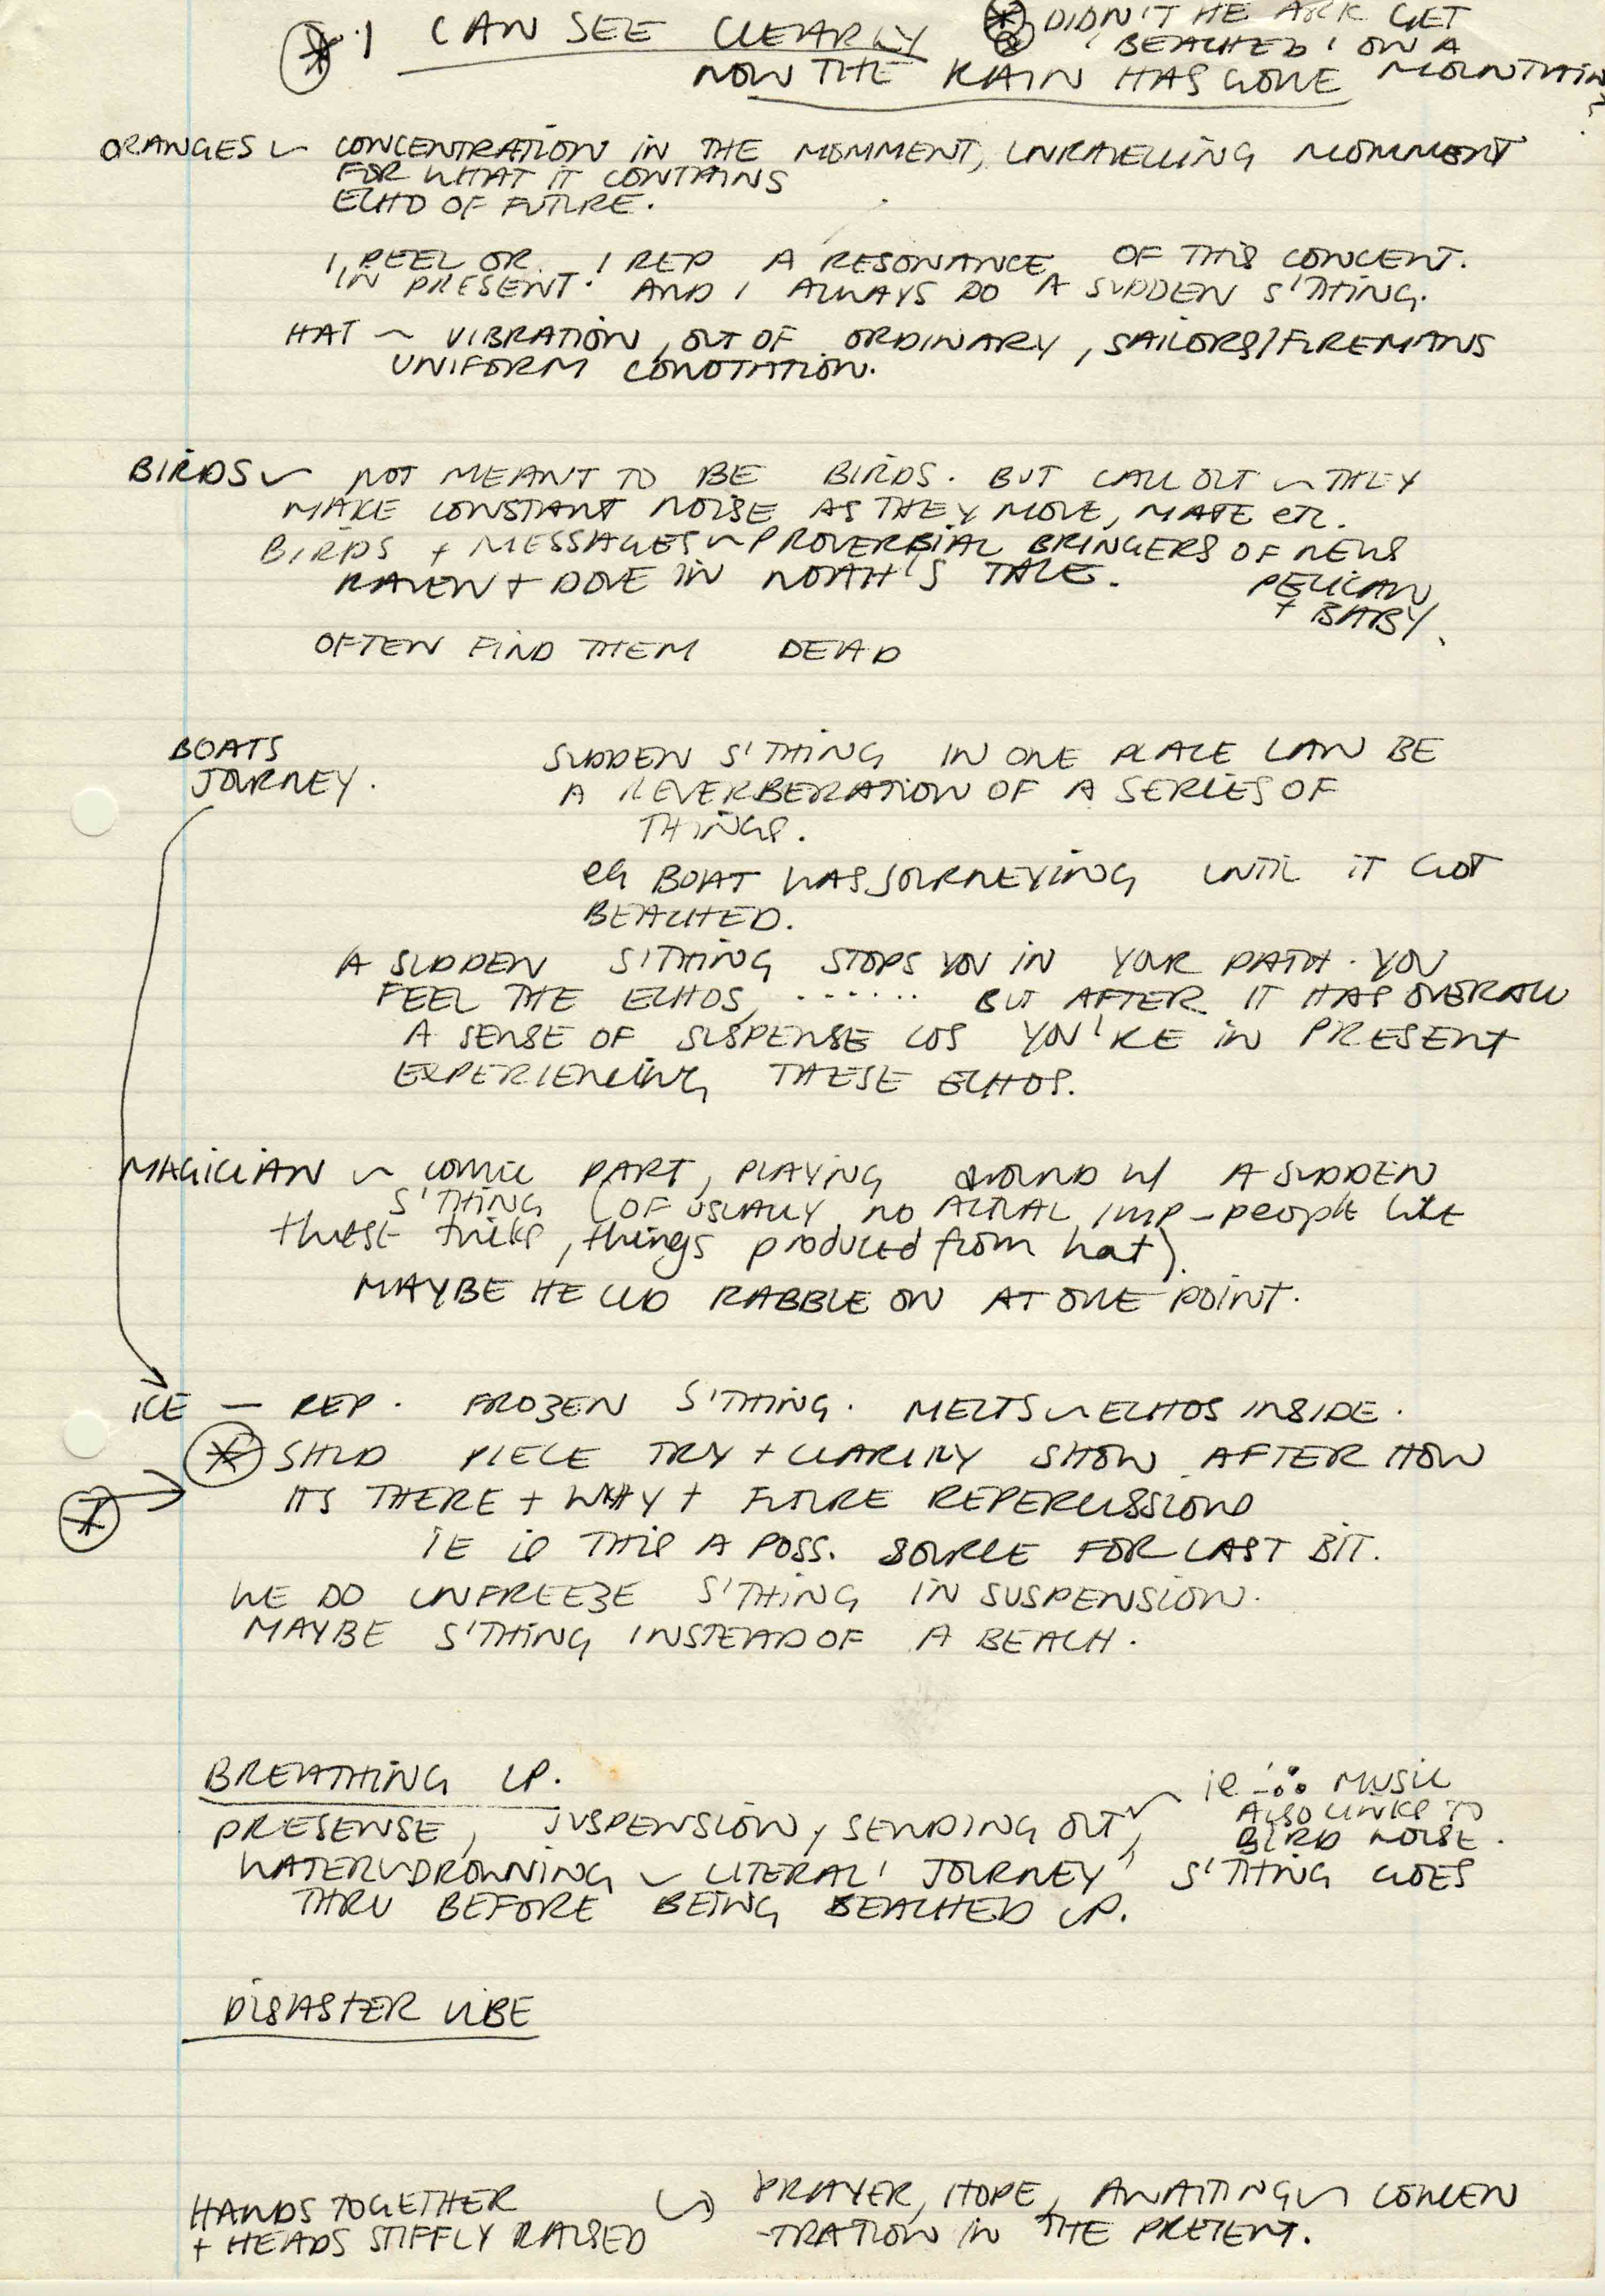 I CAN SEE CLEARLY
NOW THE RAIN HAS GONE
DIDN'T HE ARK GET
'BEACHED' ON A
MOUNTAIN?
ORANGES ~ CONCENTRATION IN THE MOMMENT, UNRAVELLING MOMMENT
FOR WHAT IT CONTAINS
ECHO OF FUTURE.
I PEEL OR. I REP A RESONANCE OF THIS CONCENT.
IN PRESENT. AND I ALWAYS DO A SUDDEN S'THING.
HAT ~ VIBRATION, OUT OF ORDINARY, SAILORS/FIREMANS
UNIFORM CONOTATION.
BIRDS ~ NOT MEANT TO BE BIRDS. BUT CALL OUT ~ THEY
MAKE CONSTANT NOISE AS THEY MOVE, MATE etc.
BIRDS + MESSAGES ~ PROVERBIAL BRINGERS OF NEWS
RAVEN + DOVE IN NOAH'S TALE.
PELICAN
+ BABY.
OFTEN FIND THEM DEAD
BOATS
JOURNEY.
SUDDEN S'THING IN ONE PLACE CAN BE
A REVERBERATION OF A SERIES OF
THINGS.
eG BOAT WAS JOURNEYING UNTIL IT GOT
BEACHED.
A SUDDEN S'THING STOPS YOU IN YOUR PATH. YOU
FEEL THE ECHOS, ....... BUT AFTER IT HAS OVERALL
A SENSE OF SUSPENSE COS YOU'RE IN PRESENT
EXPERIENCING THESE ECHOS.
MAGICIAN ~ COMIC PART, PLAYING AROUND W/ A SUDDEN
S'THING (OF USUALLY NO ACTUAL IMP - people like
these tricks, things produced from hat).
MAYBE HE CUD RABBLE ON AT ONE POINT.
ICE — REP. FROZEN S'THING. MELTS ~ ECHOS INSIDE.
SHLD PIECE TRY + CLARIFY SHOW AFTER HOW
ITS THERE + WHY + FUTURE REPERCUSSIONS
IE is THIS A POSS. SOURCE FOR LAST BIT.
WE DO UNFREEZE S'THING IN SUSPENSION.
MAYBE S'THING INSTEAD OF A BEACH.
BREATHING UP.
PRESENSE, SUSPENSION, SENDING OUT,
ie MUSIC
ALSO LINKS TO
BIRD NOISE.
WATER ~ DROWNING ~ LITERAL 'JOURNEY' S'THING GOES
THRU BEFORE BEING BEACHED UP.
DISASTER VIBE
HANDS TOGETHER
+ HEADS STIFFLY RAISED
PRAYER, HOPE, AWAITING ~ CONCEN
-TRATION IN THE PRESENT.